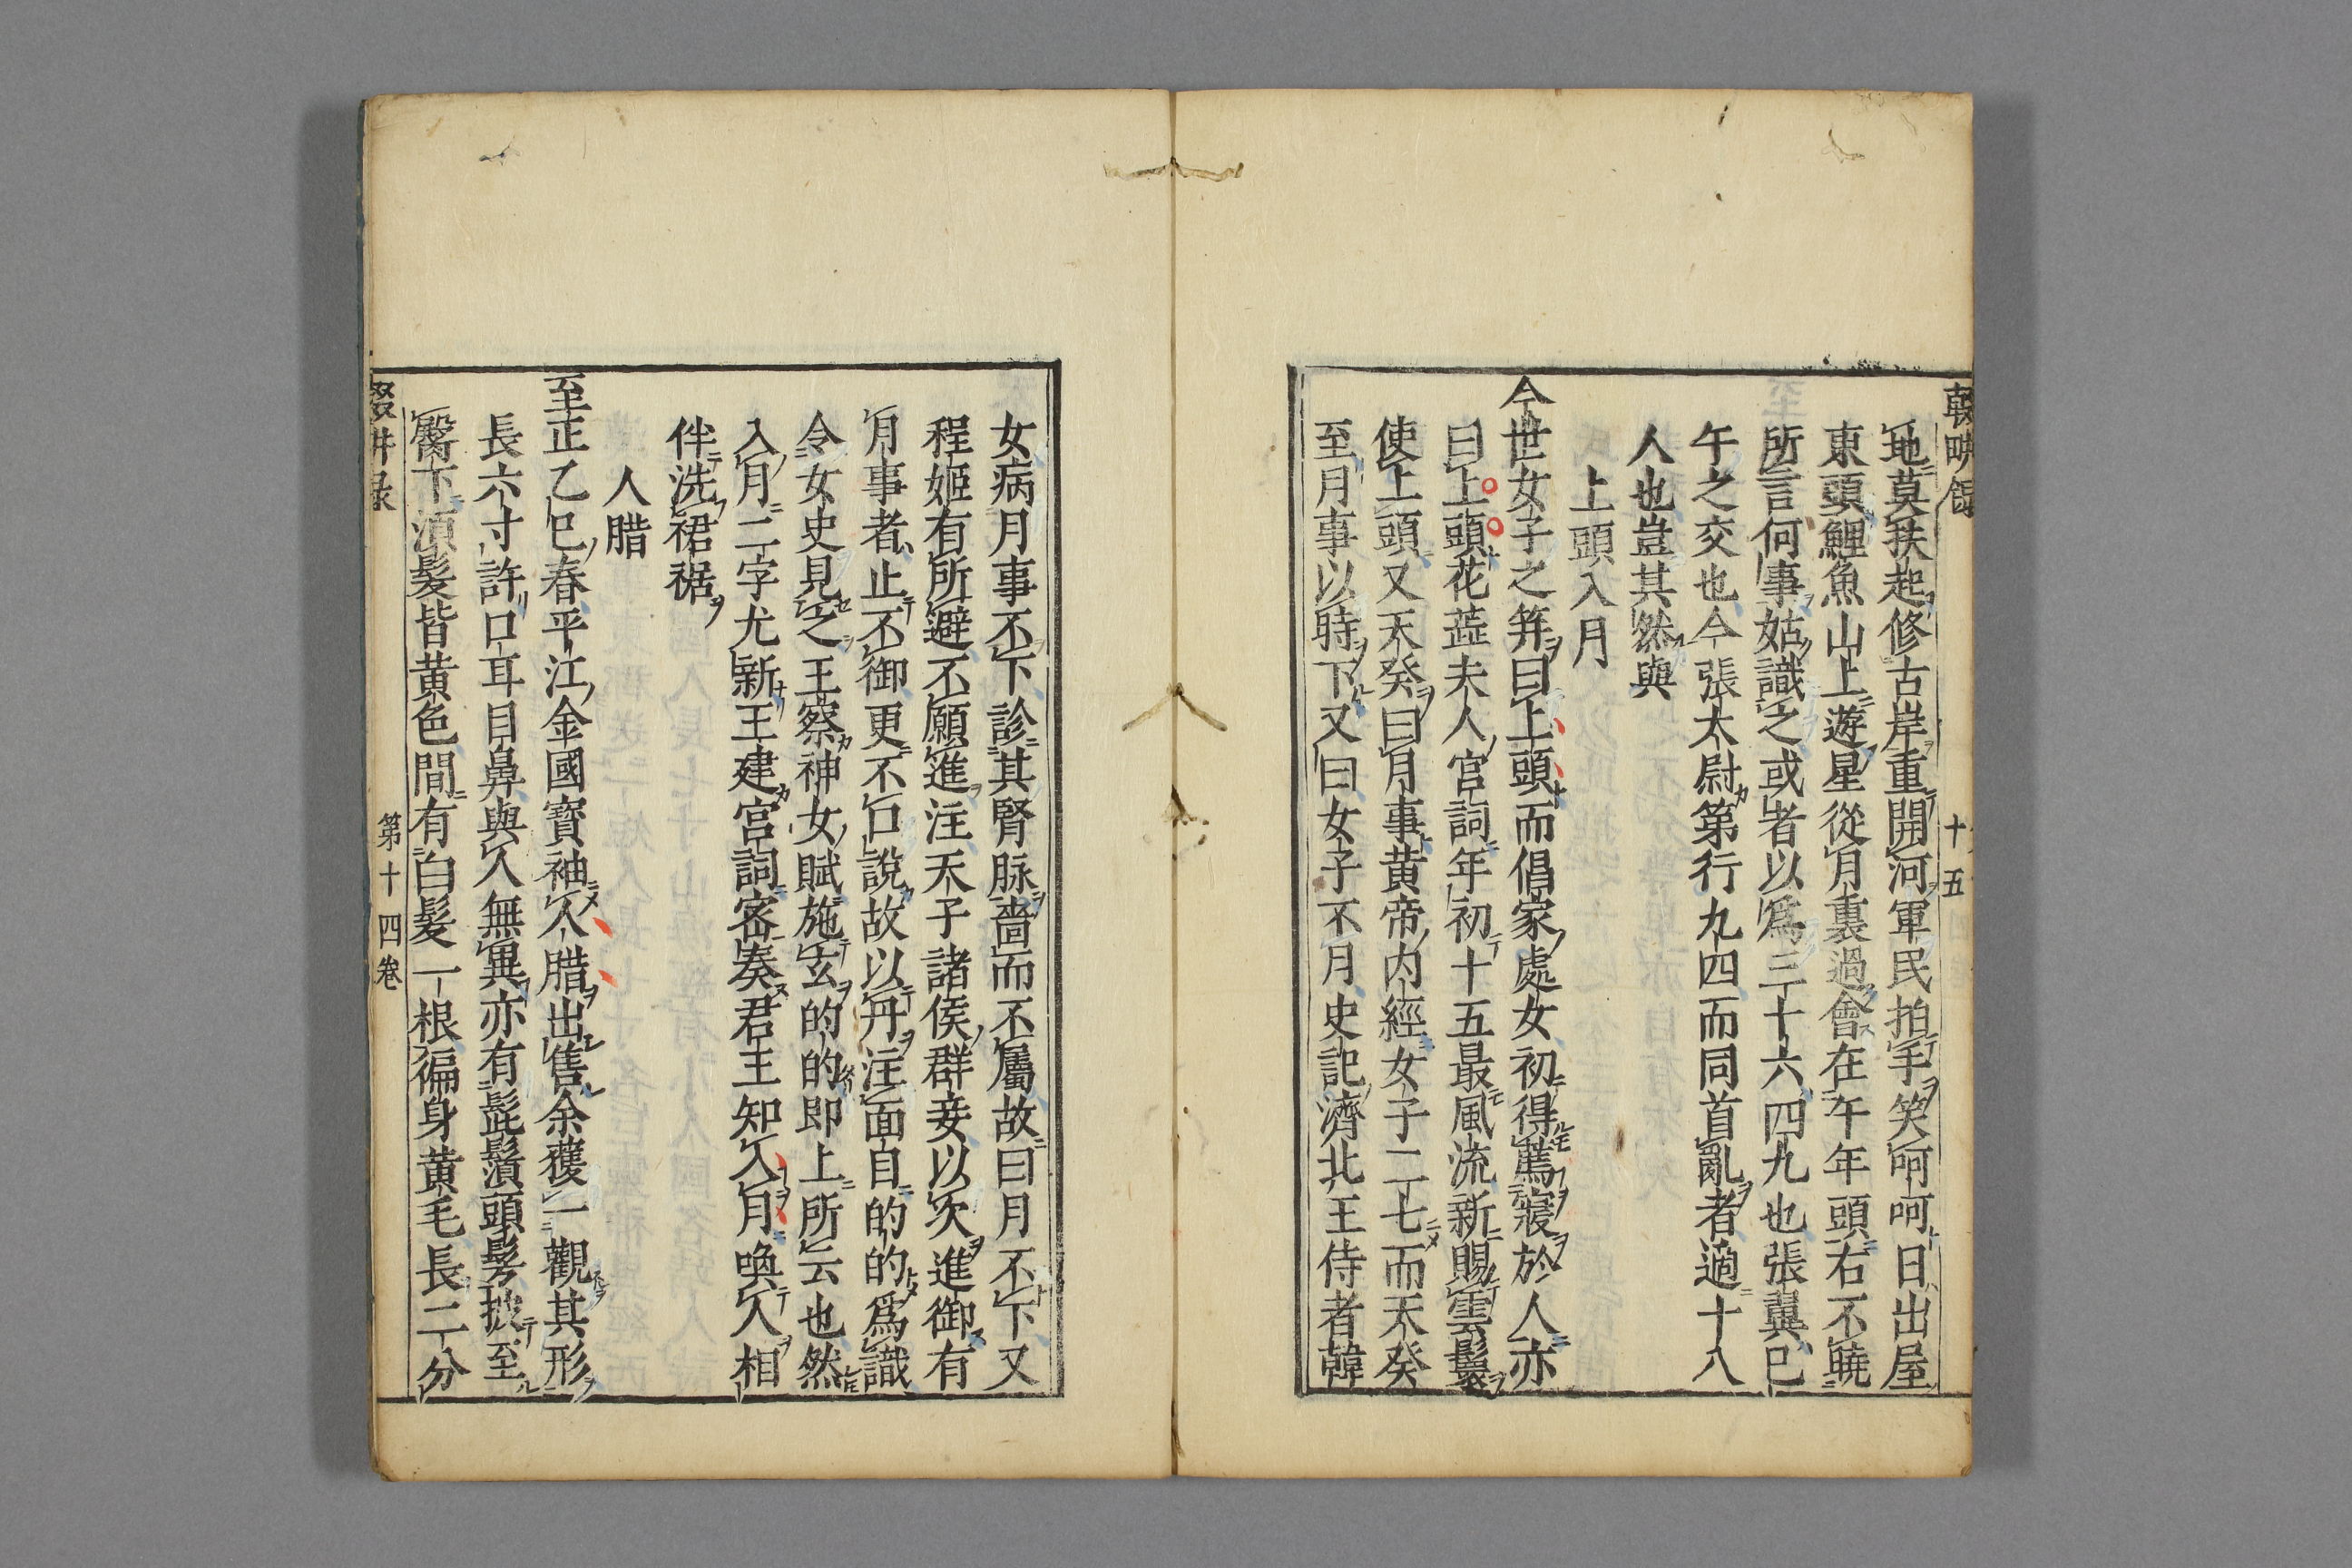 十五
地莫秩起修古岸重開河軍民拍手笑呵呵日出屋
東頭鯉魚山上遊星從月裏過會在午年頭右不曉
所言何事姑識之或者以爲三十六四九也張翼巳
午之交也今張太尉第行九四而同首亂者適十八
人也豈其然與
上頭入月
今世女子之笄曰上頭而倡家處女初得薦寢於人亦
曰上頭花蕋夫人宮詞年初十五最風流新賜雲鬟
使上頭又天癸曰月事黄帝内經女子二七而天癸
至月事以時下又曰女子不月史記濟北王侍者韓
女病月事不下診其腎脉嗇而不屬故曰月不下又
程姬有所避不願進注天子諸侯群妾以次進御有
月事者止不御更不口說故以丹注面目的的爲識
令女史見之王察神女賦施玄的的即上所云也然
入月二字尤新王建宮詞密奏君王知入月喚人相
伴洗裙裾
人腊
至正乙巳春平江金國寶袖人腊出售余獲一觀其形
長六寸許口耳目鼻與人無異亦有髭鬚頭髮披至
臀下須髮皆黄色間有白髮一根徧身黄毛長二分
第十四卷